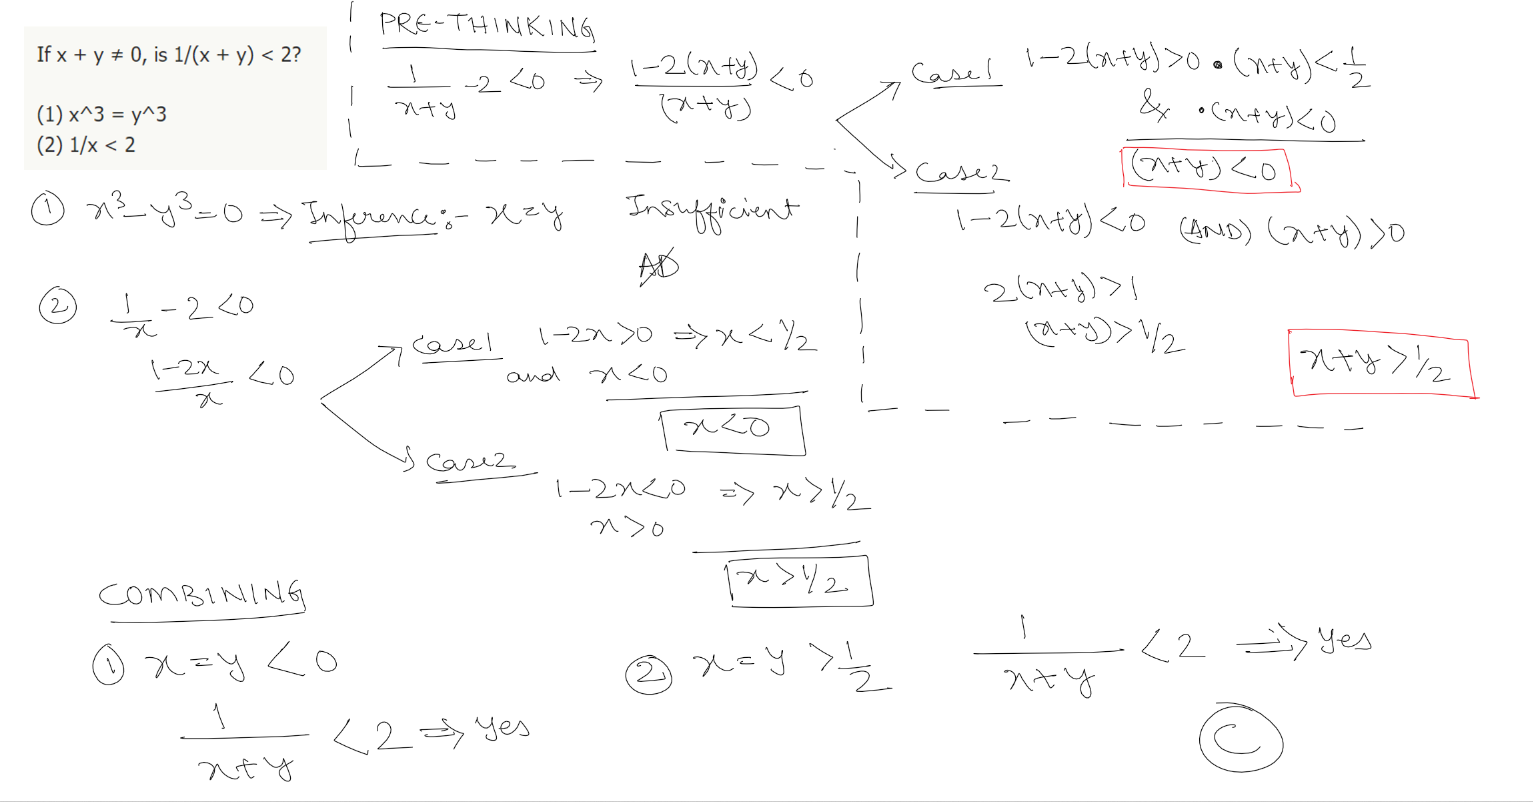 If x + y ≠ 0, is 1/(x + y) < 2?
(1) x^3 = y^3
(2) 1/x < 2
PRE-THINKING
1/(x+y) - 2 < 0 ⇒ (1-2(x+y))/(x+y) < 0
Case1 1-2(x+y)>0 • (x+y)<1/2
& • (x+y)<0
(x+y)<0
Case2
1-2(x+y)<0 (AND) (x+y)>0
2(x+y)>1
(x+y)>1/2
x+y>1/2
① x³-y³=0 ⇒ Inference:- x=y Insufficient
AD
② 1/x - 2 < 0
(1-2x)/x < 0
Case1 1-2x>0 ⇒ x<1/2
and x<0
x<0
Case2
1-2x<0 ⇒ x>1/2
x>0
x>1/2
COMBINING
① x=y<0
1/(x+y) < 2 ⇒ yes
② x=y>1/2 1/(x+y) < 2 ⇒ yes
C